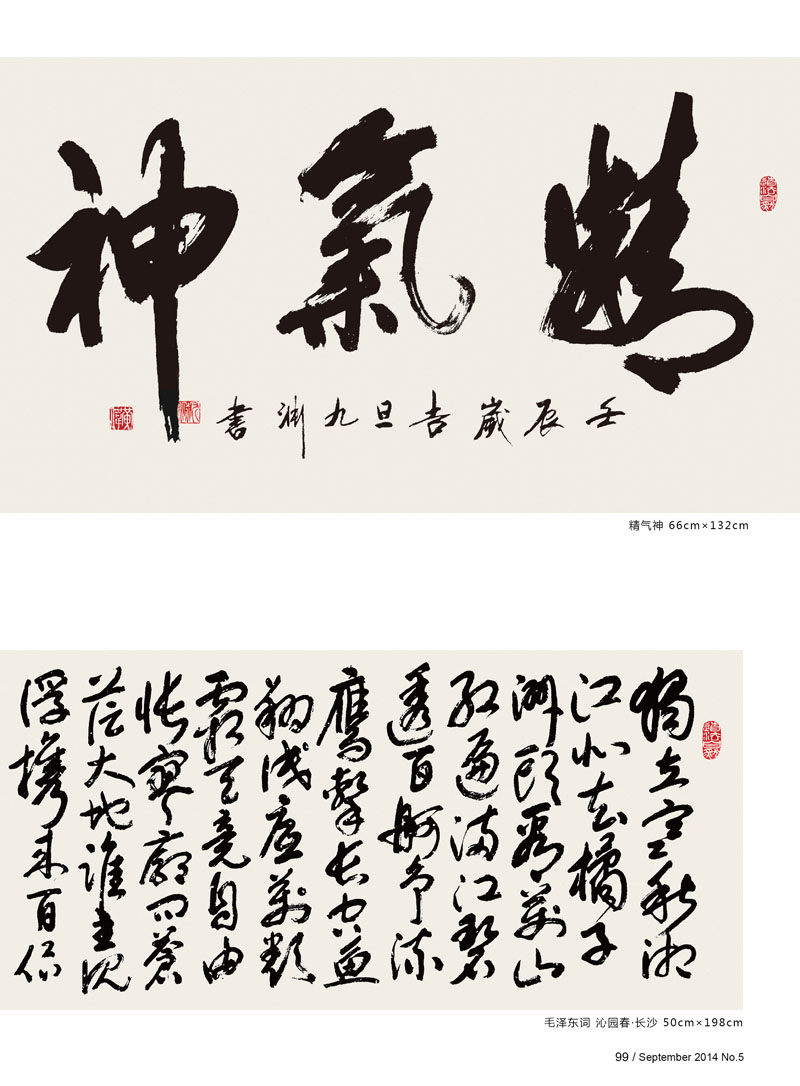 精氣神
壬辰歲吉旦九渊書
精气神 66cm×132cm
獨立寒秋湘
江北去橘子
洲頭看萬山
红遍漫江碧
透百舸争流
鷹擊長空魚
翔浅底萬類
霜天竞自由
悵寥廓問蒼
茫大地誰主沉
浮攜来百侣
毛泽东词 沁园春·长沙 50cm×198cm
99 / September 2014 No.5